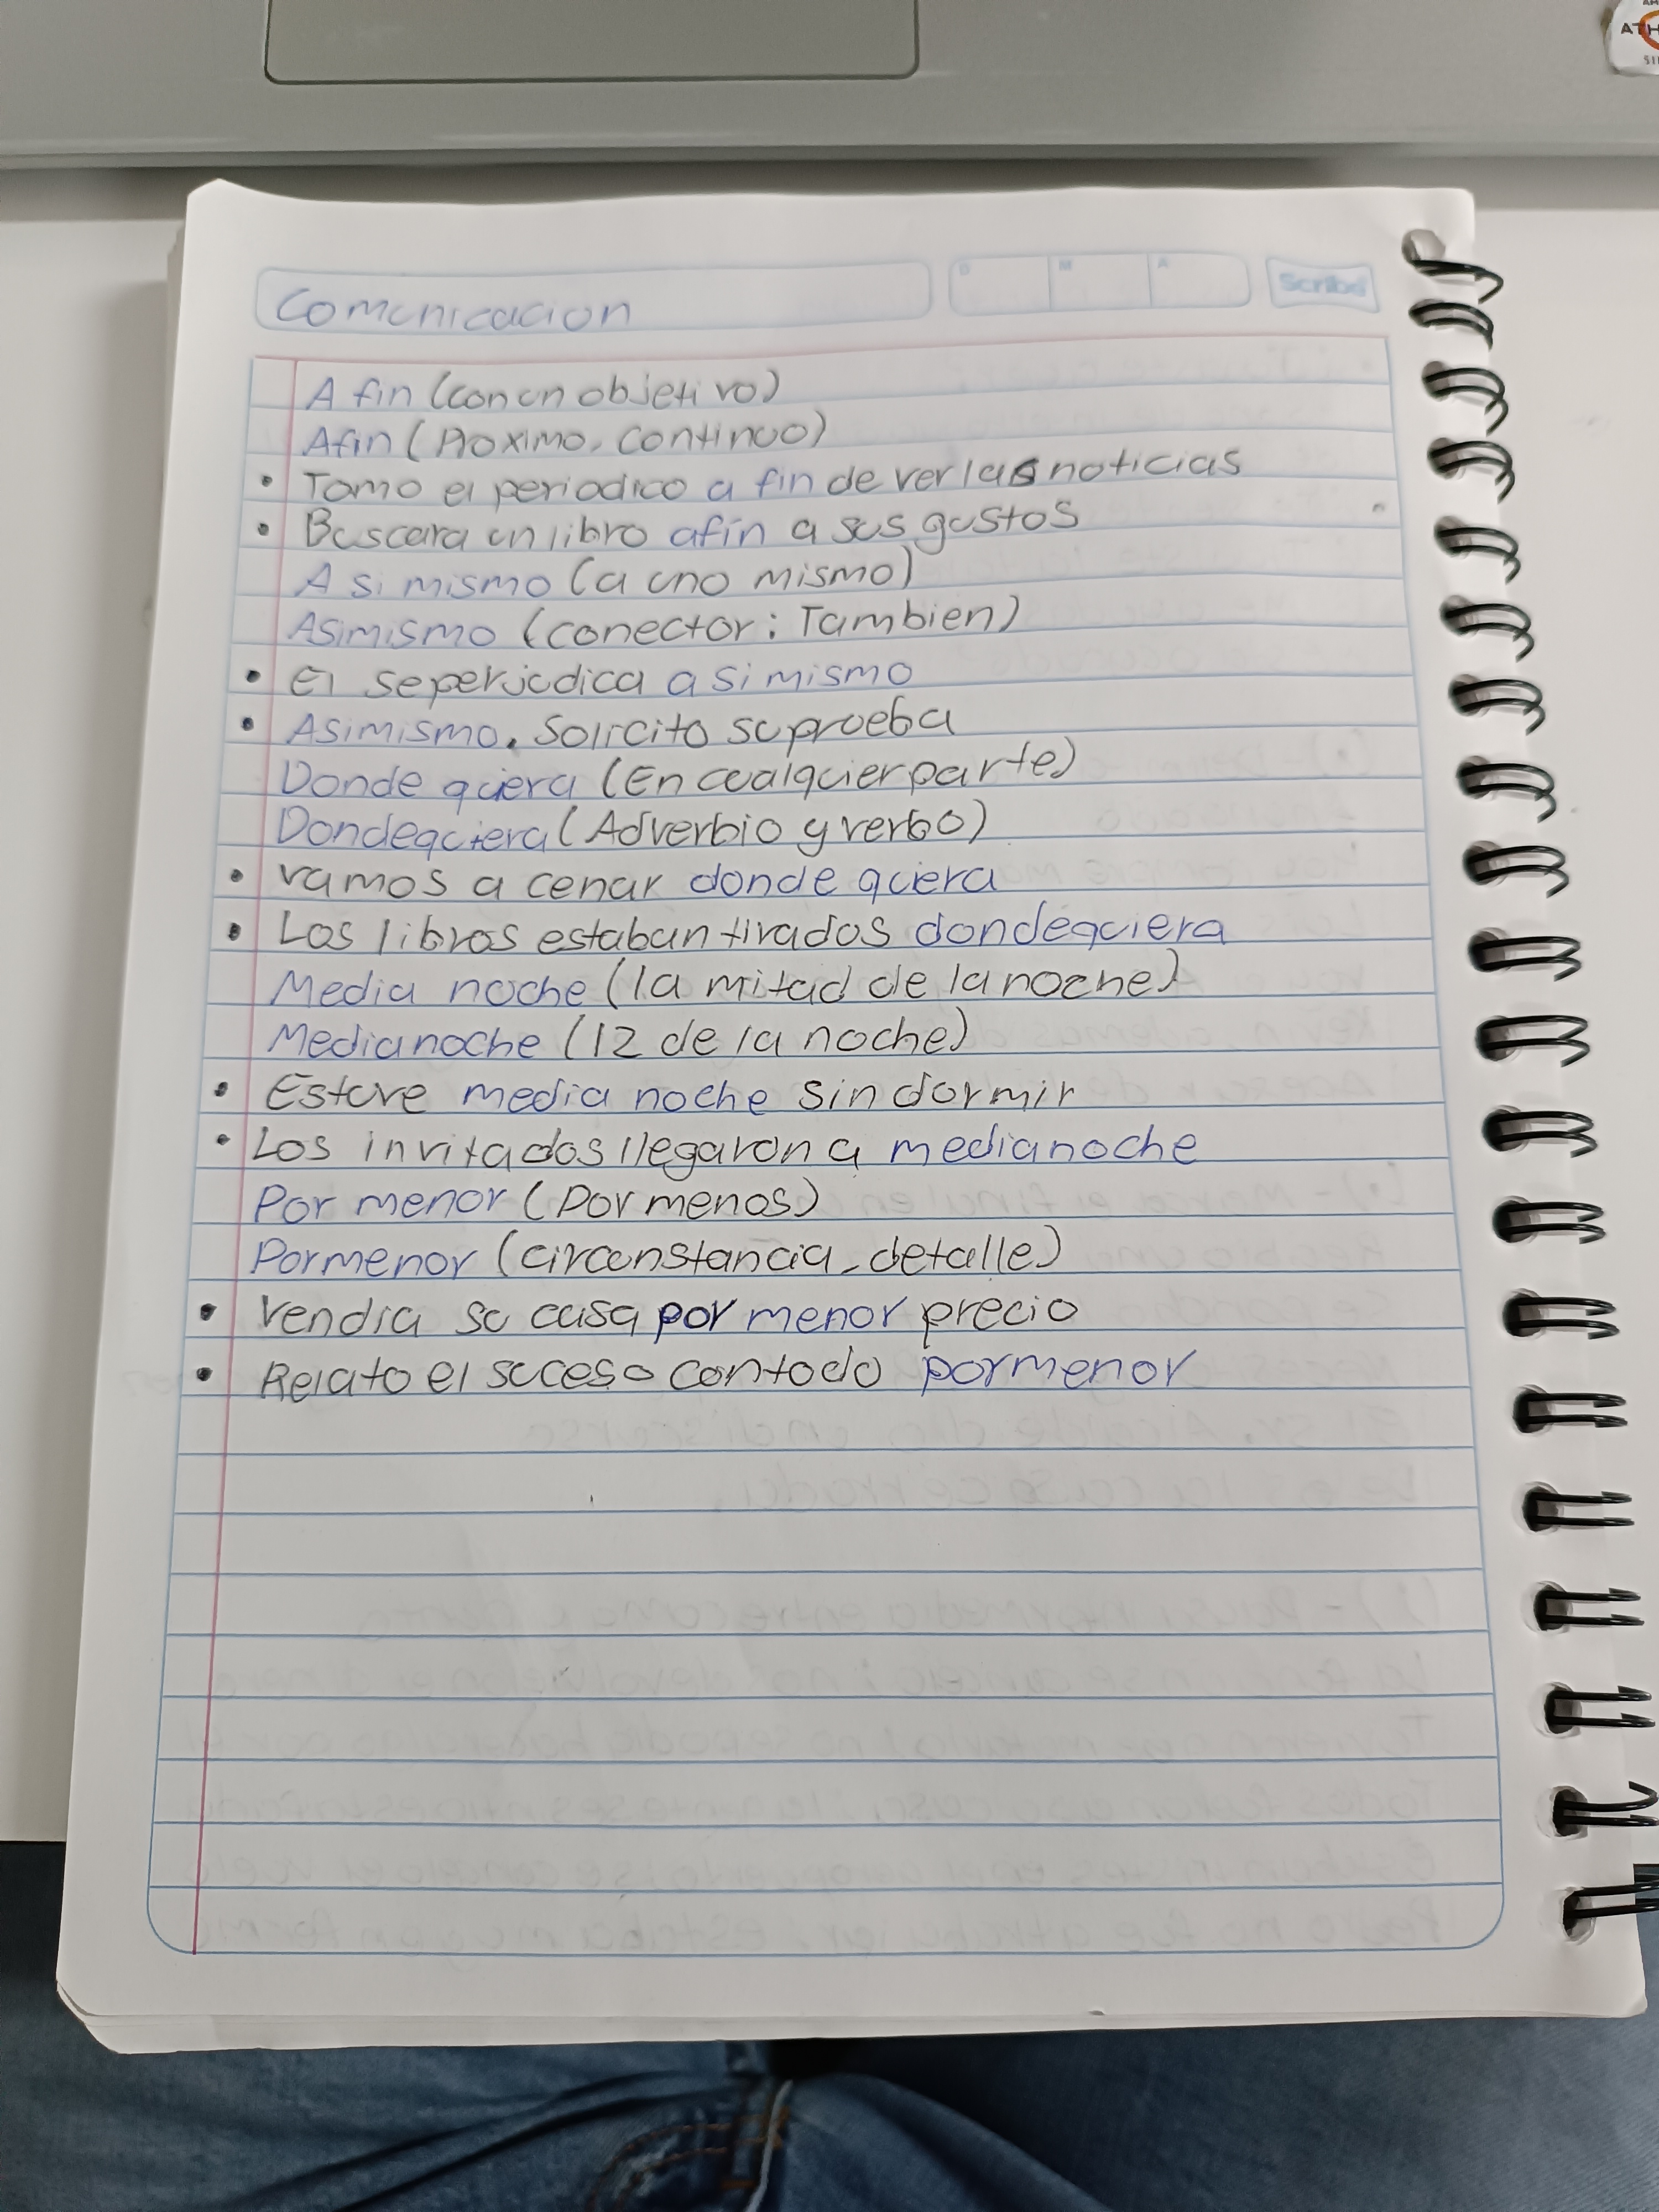 Comunicacion
D M A
Scribe
A fin (con un objetivo)
Afin (Proximo, continuo)
• Tomo el periodico a fin de ver las noticias
• Buscara un libro afín a sus gustos
A si mismo (a uno mismo)
Asimismo (conector: Tambien)
• El se perjudica a si mismo
• Asimismo, Solicito su prueba
Donde quiera (En cualquier parte)
Dondequiera (Adverbio y verbo)
• vamos a cenar donde quiera
• Los libros estaban tirados dondequiera
Media noche (la mitad de la noche)
Medianoche (12 de la noche)
• Estuve media noche sin dormir
• Los invitados llegaron a medianoche
Por menor (Por menos)
Pormenor (circunstancia, detalle)
• Vendia su casa por menor precio
• Relato el suceso con todo pormenor